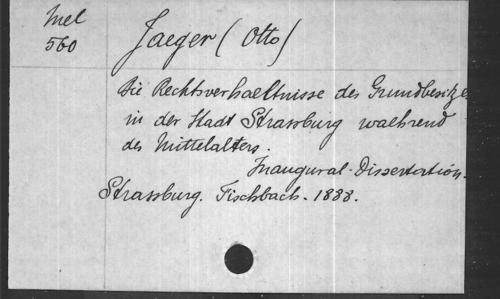 Mel
560
Jaeger (Otto)
Die Rechtsverhaeltnisse des Grundbesitzes
in der Stadt Strassburg waehrend
des Mittelalters.
Inaugural-Dissertation.
Strassburg. Fischbach. 1888.